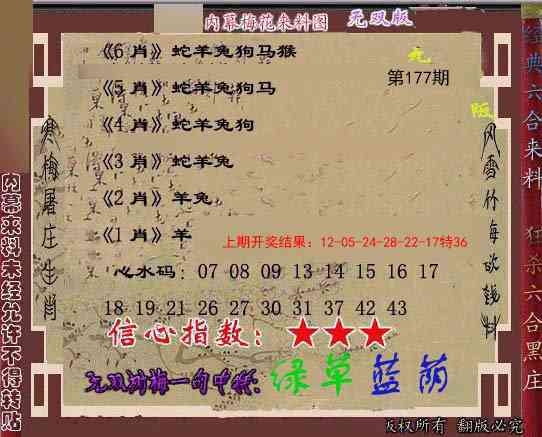 内幕梅花来料图 无双版
《6 肖》蛇羊兔狗马猴
第177期
《5 肖》蛇羊兔狗马
《4 肖》蛇羊兔狗
《3 肖》蛇羊兔
《2 肖》羊兔
《1 肖》羊
上期开奖结果：12-05-24-28-22-17特36
心水码：07 08 09 13 14 15 16 17
18 19 21 26 27 30 31 37 42 43
信心指数：★★★
绿草蓝荫
版权所有 翻版必究
寒梅屠庄生肖
内幕来料未经允许不得转贴
经典六合来料 狂杀六合黑庄